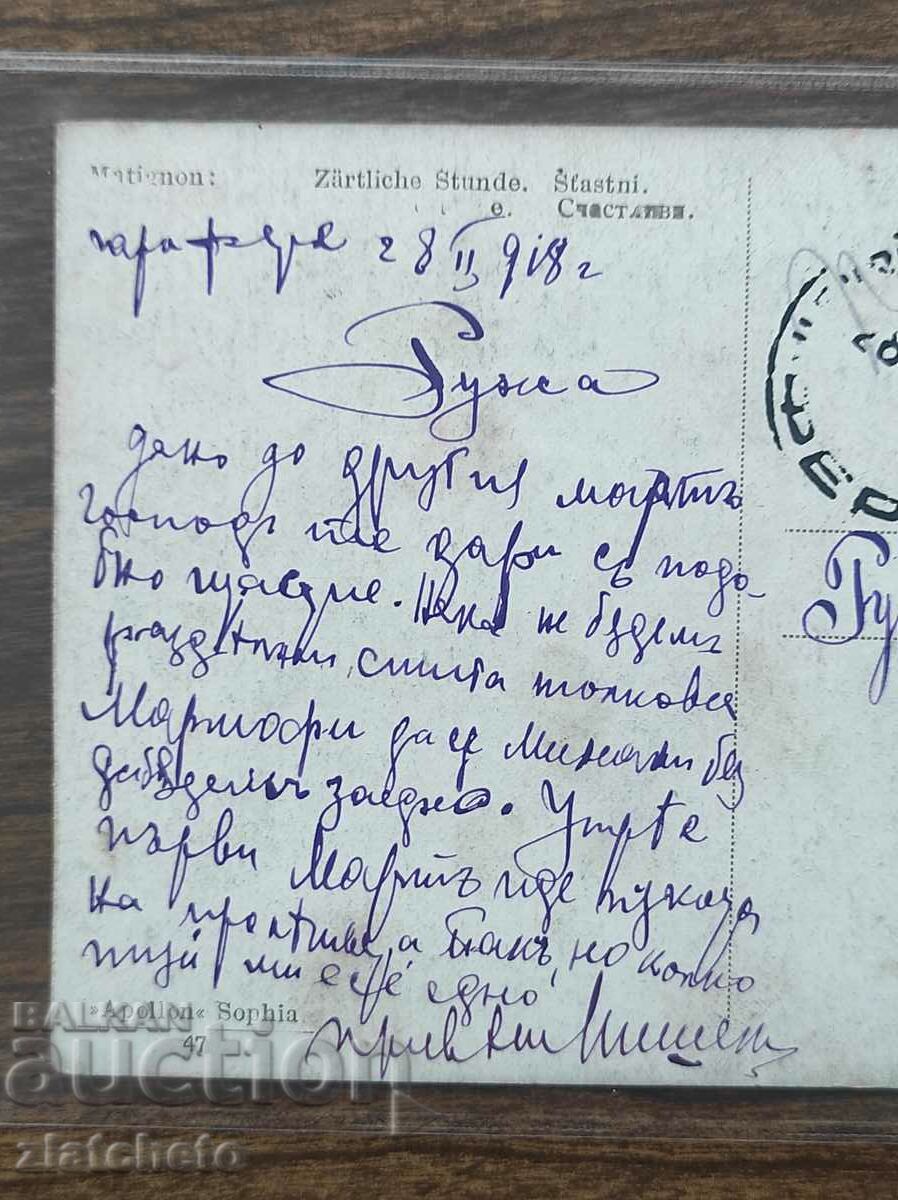 Matignon: Zärtliche Stunde. Šťastni.
e. Счастливи.
28 II 918 г
Ружа
дано до другия мартъ
Господъ ме дари съ подо-
бно щастие. Нека не бъдемъ
разделени, стига толкова
Мартофри да се минали без
да бъдемъ заедно. Утре е
първи Мартъ иде
на пролетьта, а но колко
туй ми е се едно
Привет Мишел
»Apollon« Sophia
47
Ру
BALKAN
auction
zlatcheto